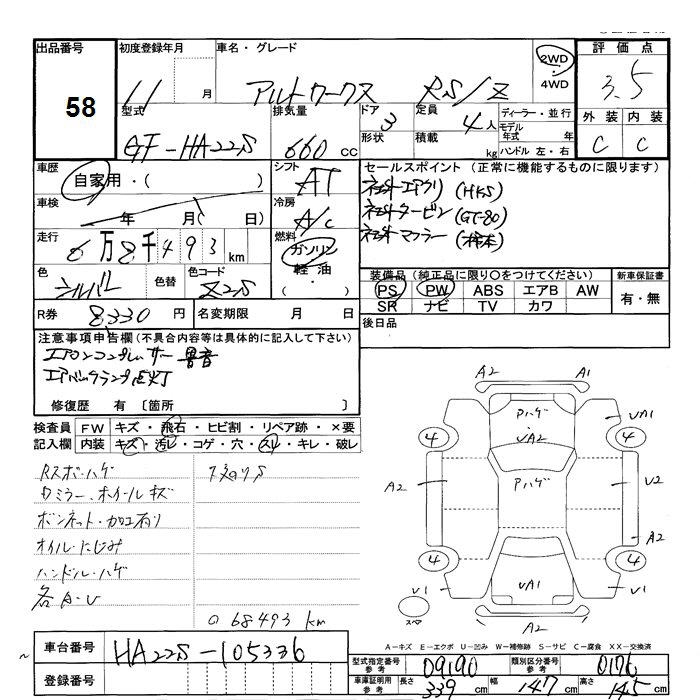 出品番号 58
初度登録年月 11 月
車名・グレード アルトワークス RS/Z
2WD・4WD
評価点 3.5
外装 C 内装 C
型式 GF-HA22S
排気量 660 cc
ドア形状 3
定員 4人
積載 kg
ディーラー・並行
モデル年式 年
ハンドル 左・右
車歴 自家用・( )
シフト AT
セールスポイント (正常に機能するものに限ります)
社外エアクリ (HKS)
社外タービン (GT-80)
社外マフラー (柿本)
車検 年 月( 日)
冷房 A/C
走行 6万8千493 km
燃料 ガソリン 軽油・( )
色 シルバー
色替
色コード Z2S
装備品 (純正品に限り○をつけてください)
PS PW ABS エアB AW
SR ナビ TV カワ
新車保証書 有・無
R券 8,330 円
名変期限 月 日
後日品
注意事項申告欄 (不具合内容等は具体的に記入して下さい)
エアコンコンプレッサー異音
エアバックランプ点灯
修復歴 有 〔箇所 〕
検査員記入欄
FW キズ・飛石・ヒビ割・リペア跡・×要
内装 キズ・汚レ・コゲ・穴・スレ・キレ・破レ
Rスポ・ハゲ
Wミラー、ホイールキズ
ボンネット・加工有り
オイル・にじみ
ハンドル・ハゲ
各A・U
○ 68493 km
A2 A1
Pハゲ
UA2
UA1
4 4
Pハゲ
A2 U2
A2
4 4
UA1
U1 U1
スペア
A2
A−キズ E−エクボ U−凹み W−補修跡 S−サビ C−腐食 XX−交換済
車台番号 HA22S-105336
登録番号
型式指定番号 参考 09190
類別区分番号 参考 0176
車庫証明用 参考 長さ 339 cm 幅 147 cm 高さ 145 cm